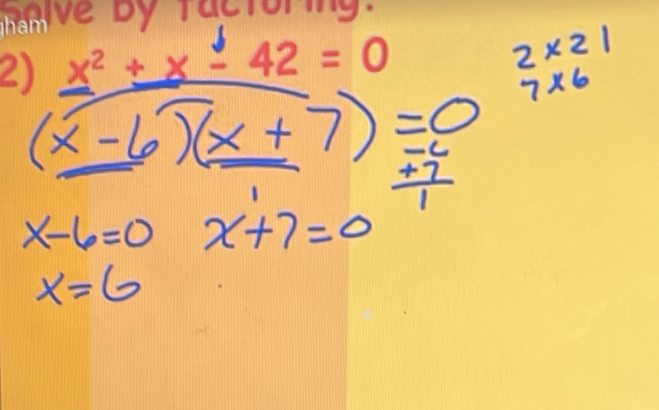 Solve by factoring.
gham
2) x² + x - 42 = 0
2 x 21
7 x 6
(x - 6)(x + 7) = 0
-6
+7
1
x - 6 = 0 x + 7 = 0
x = 6